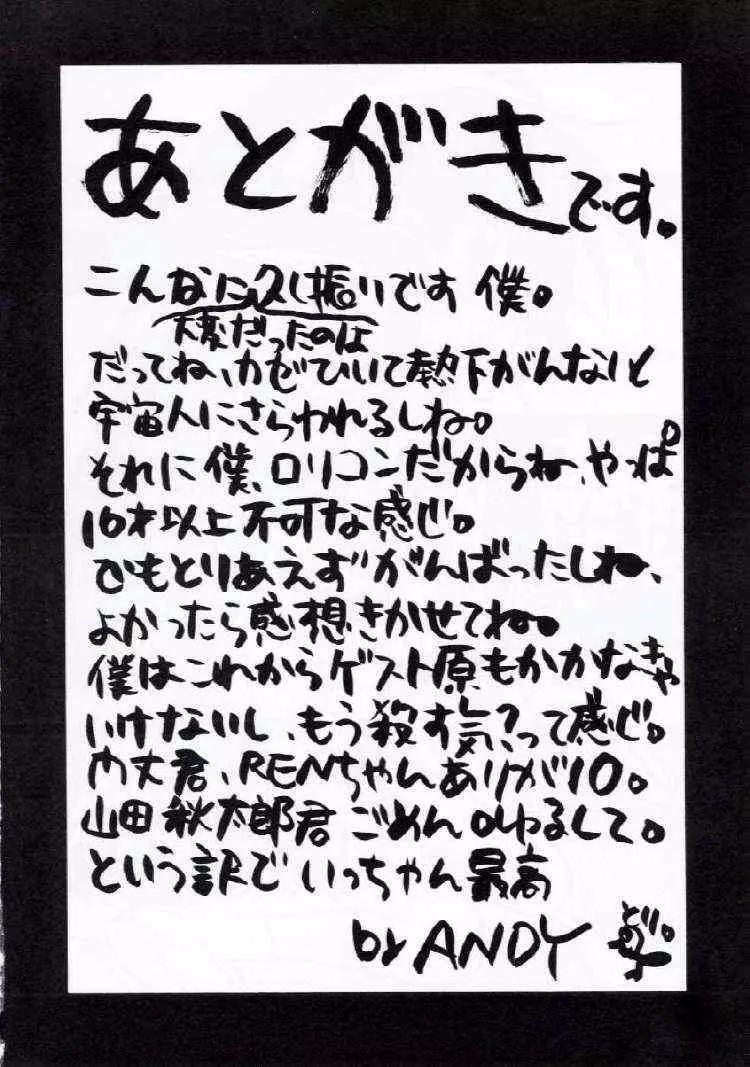 あとがきです。
こんなに久し振りです 僕。
大変だったのは
だってね、カゼひいて熱下がんないと
宇宙人にさらわれるしね。
それに僕、ロリコンだからね、やっぱ
10才以上不可な感じ。
でもとりあえずがんばったしね、
よかったら感想きかせてね。
僕はこれからゲスト原もかかなきゃ
いけないし、もう殺す気?って感じ。
内丈君、RENちゃんありが10。
山田秋太郎君 ごめん ゆるして。
という訳で いっちゃん最高
by ANDY